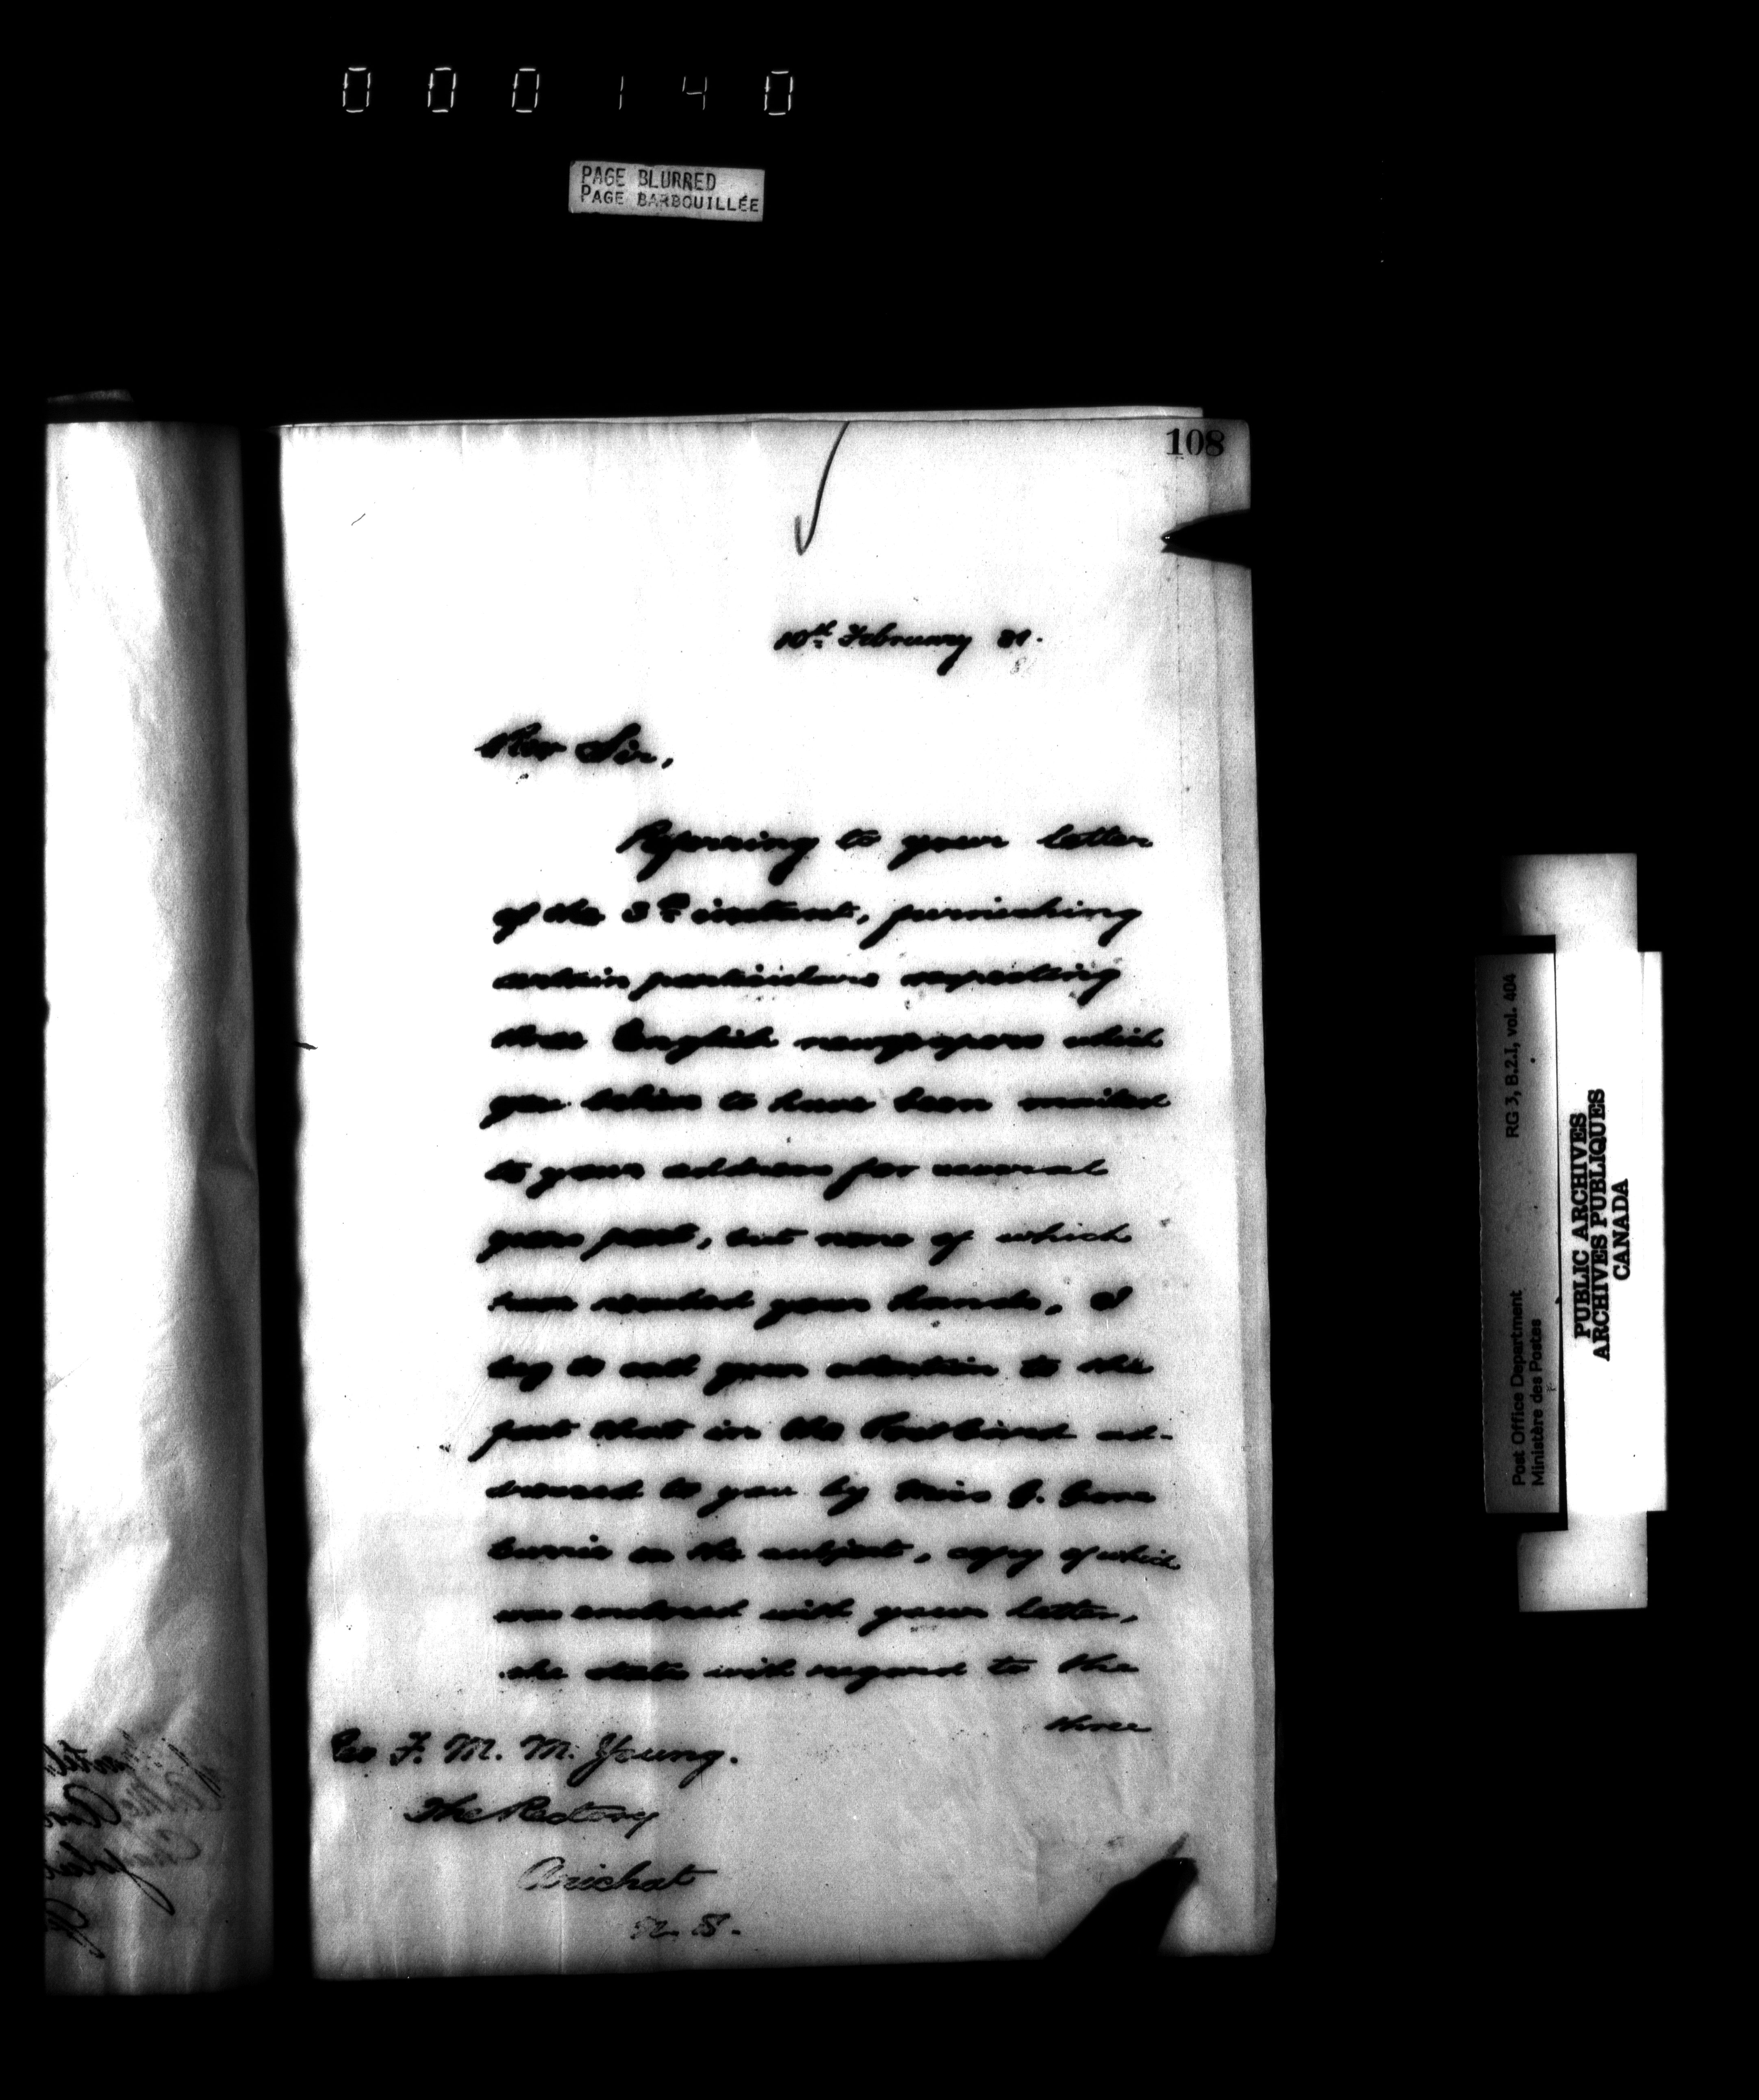 000140
PAGE BLURRED
PAGE BARBOUILLÉE
108
10th February 81.
Rev Sir,
Referring to your letter
of the 3rd instant, furnishing
certain particulars respecting
three English newspapers which
you believe to have been mailed
to your address for several
years past, but none of which
have reached your hands, I
beg to call your attention to the
fact that in the Post Card ad-
dressed to you by Miss G.
on the subject, copy of which
was enclosed with your letter,
she states with regard to the
three
F. M. M. Young.
The Rectory
Arichat
N. S.
Post Office Department RG 3, B.2.I, vol. 404
Ministère des Postes
PUBLIC ARCHIVES
ARCHIVES PUBLIQUES
CANADA